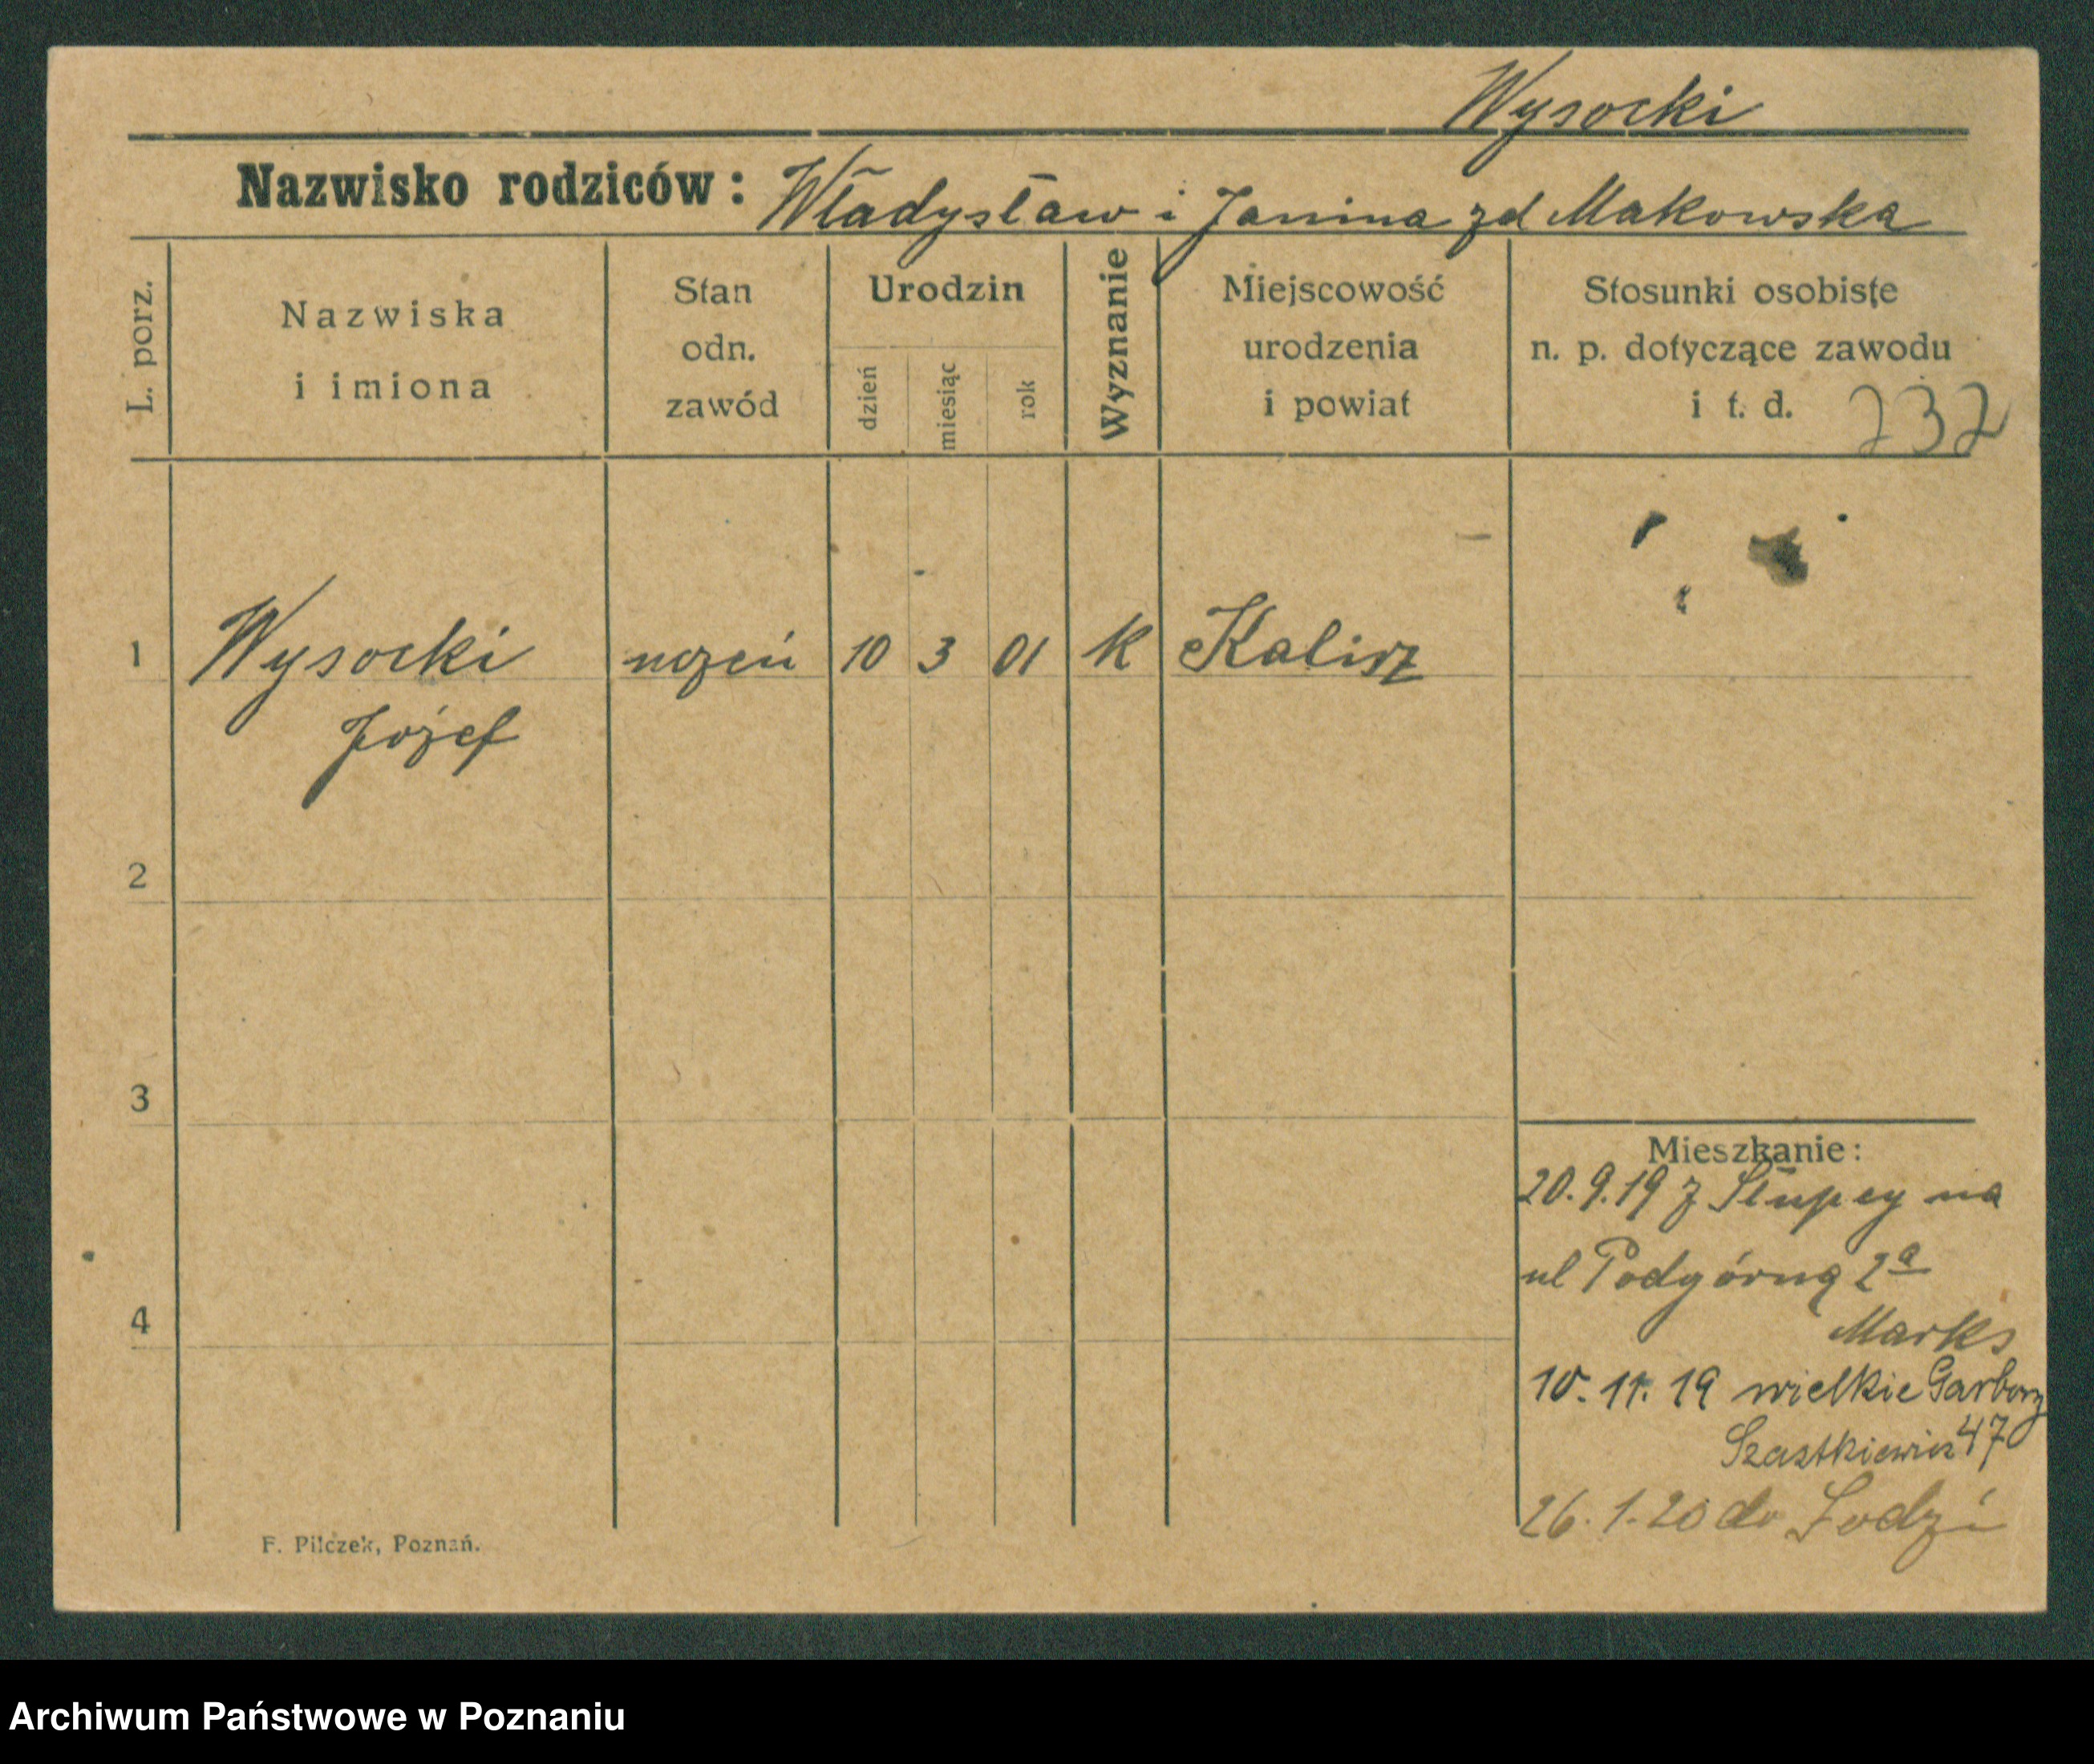 Wysocki
Nazwisko rodziców: Władysław i Janina zd Makowska
L. porz.
Nazwiska
i imiona
Stan
odn.
zawód
Urodzin
dzień
miesiąc
rok
Wyznanie
Miejscowość
urodzenia
i powiat
Stosunki osobiste
n. p. dotyczące zawodu
i t. d. 232
1 Wysocki uczeń 10 3 01 K Kalisz
Józef
2
3
Mieszkanie:
20.9.19 z Słupcy na
ul Podgórną 2a
4
Marks
10.11.19 wielkie Garbary
47
26.1.20 do Lodzi
F. Pilczek, Poznań.
Archiwum Państwowe w Poznaniu